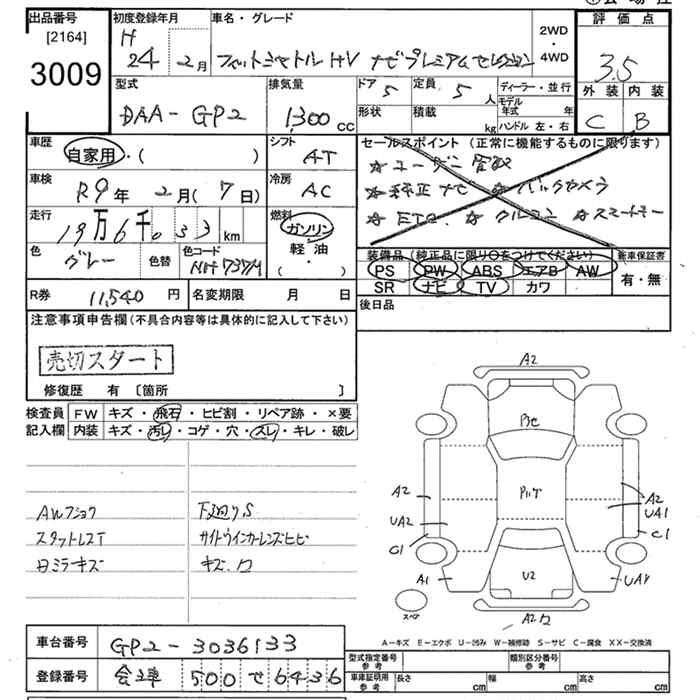 出品番号
[2164]
3009
初度登録年月
H
24 2月
車名・グレード
フィットシャトルHV ナビプレミアムセレクション
2WD
・
4WD
評価点
3.5
外装 内装
C B
型式
DAA-GP2
排気量
1,300 cc
ドア
5
定員
5 人
形状
積載
kg
ディーラー・並行
モデル年式 年
ハンドル 左・右
車歴
自家用・( )
シフト
AT
車検
R9年 2月(7日)
冷房
AC
走行
19万6千033km
燃料
ガソリン
軽・油
・
( )
色
グレー
色替
色コード
NH737M
セールスポイント(正常に機能するものに限ります)
☆ ユーザー買取
☆純正ナビ ☆バックカメラ
☆ ETC ☆ クルコン ☆スマートキー
装備品(純正品に限り〇をつけてください)
PS PW ABS エアB AW
SR ナビ TV カワ
新車保証書
有・無
R券 11,540 円
名変期限 月 日
後日品
注意事項申告欄(不具合内容等は具体的に記入して下さい)
売切スタート
修復歴 有 〔箇所 〕
検査員 FW キズ・飛石・ヒビ割・リペア跡・×要
記入欄 内装 キズ・汚レ・コゲ・穴・スレ・キレ・破レ
AWフショク
スタットレスT
日ミラーキズ
下廻りS
サイドウインカーレンズヒビ
キズ.ワ
A2
Pﾋﾋ
A2
UA2
C1
A1
Pｿｹ
A2
UA1
C1
U2
UA1
スペア
A2ワ
A-キズ E-エクボ U-凹み W-補修跡 S-サビ C-腐食 XX-交換済
車台番号 GP2-3036133
登録番号 会津 500 せ 6436
型式指定番号 参考
類別区分番号 参考
車庫証明用 参考
長さ cm
幅 cm
高さ cm